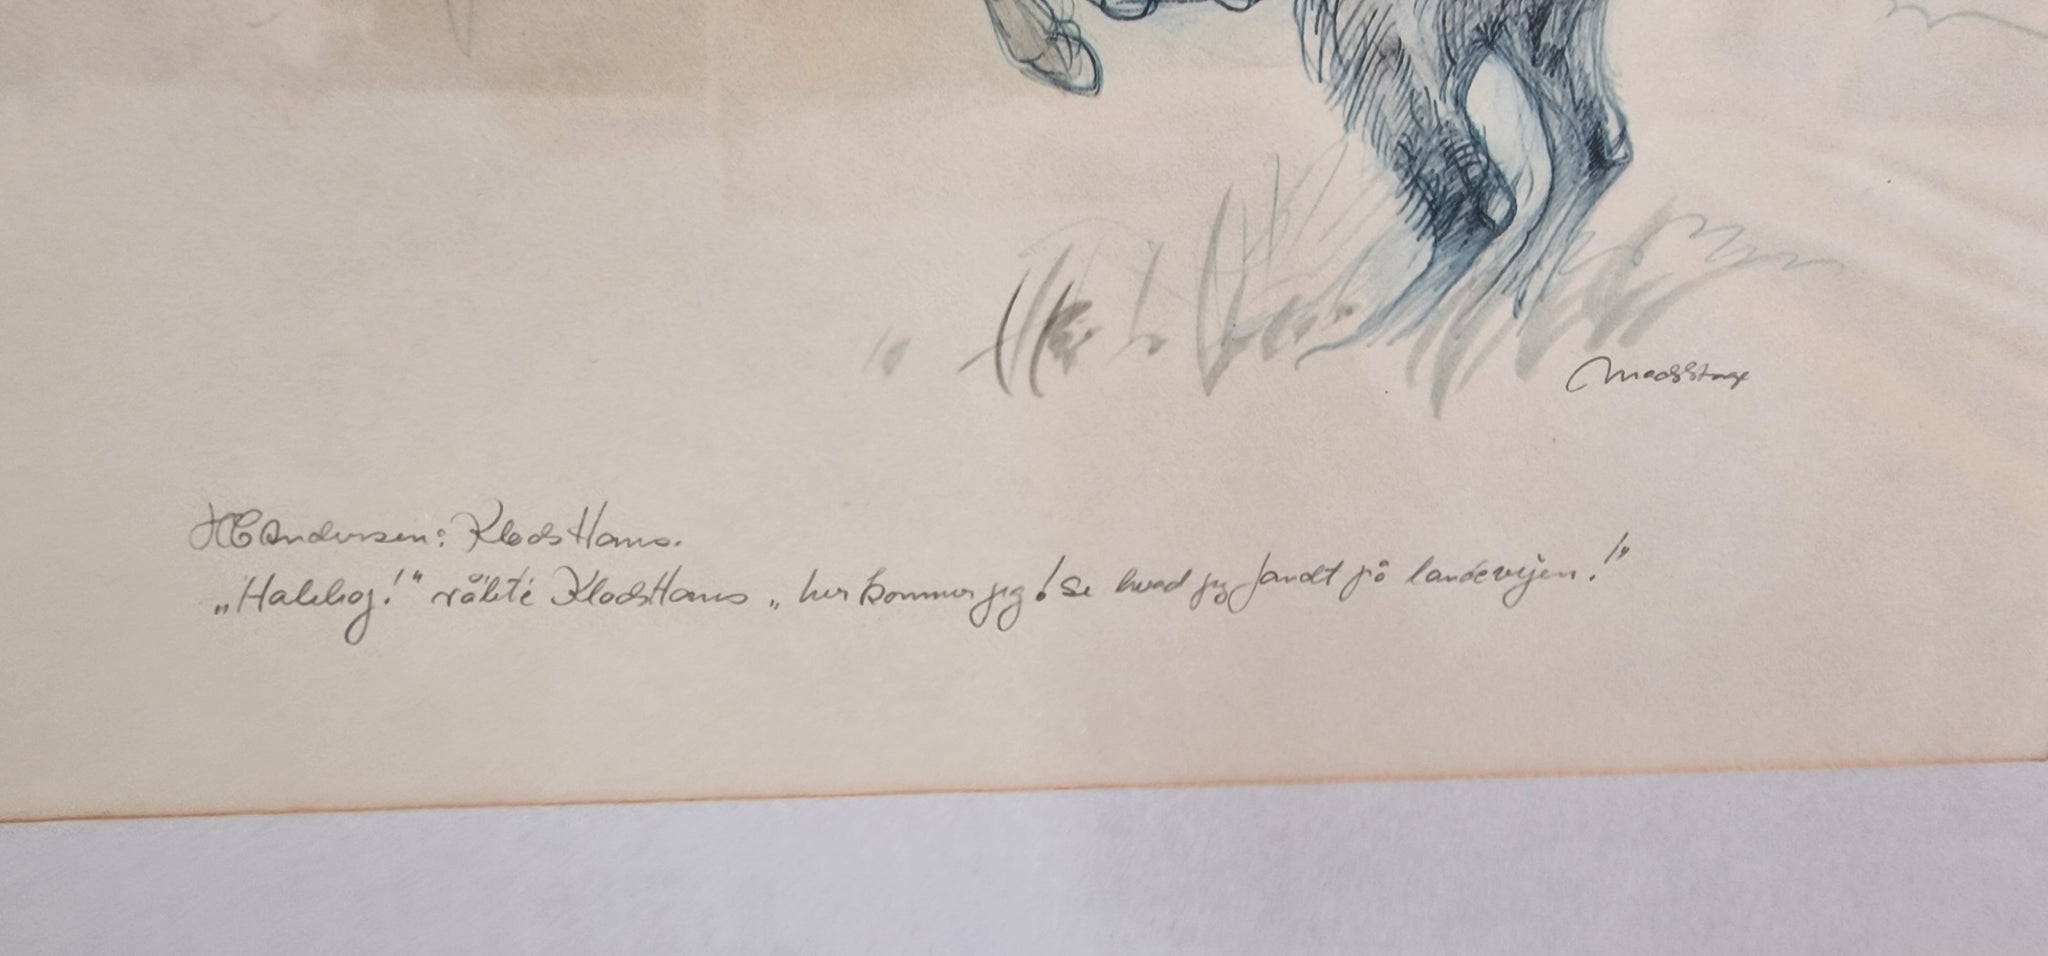 Mads Stage
HC Andersen: Klods Hans.
„Halehoj!" råbte Klods Hans „her kommer jeg! Se hvad jeg fandt på landevejen!"